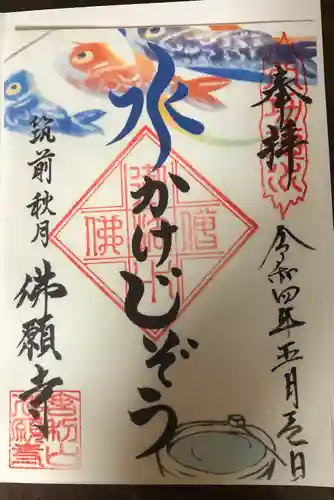 奉拝
令和四年五月壱日
水かけじぞう
筑前秋月
佛願寺